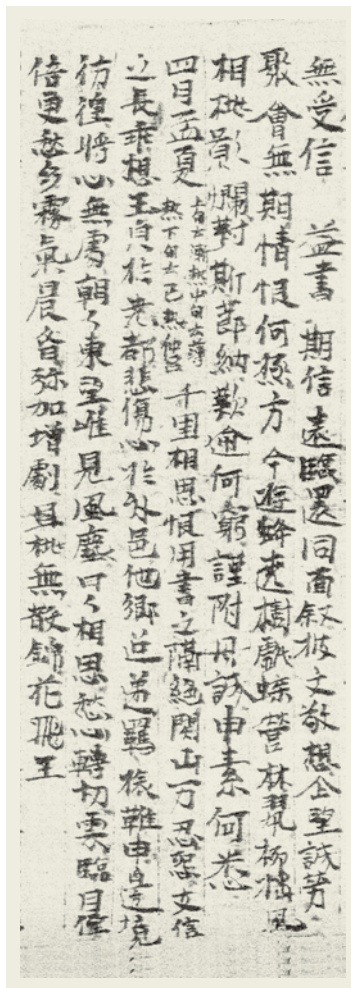 無受信 益書 期信遠臨還同面叙披文敬想企望誠勞
聚會無期情恨何極方今遊蜂遶樹戲蝶營林翠柳梢風
相桃影爛對斯節納歎逾何窮謹附丹誠申素何悉
四月孟夏 上旬云漸熱中旬云薄熱下旬云已熱他皆 千里相思恨用書之隔絕關山万忍寄文信
之長乘想王兄於老都悲傷心於外邑他鄉迢遞羈旅難申邊境
彷徨將心無處朝々東望唯見風塵日々相思愁心轉切雲臨目僮
倍更愁多霧氣晨昏弥加增劇且桃無散錦花飛王